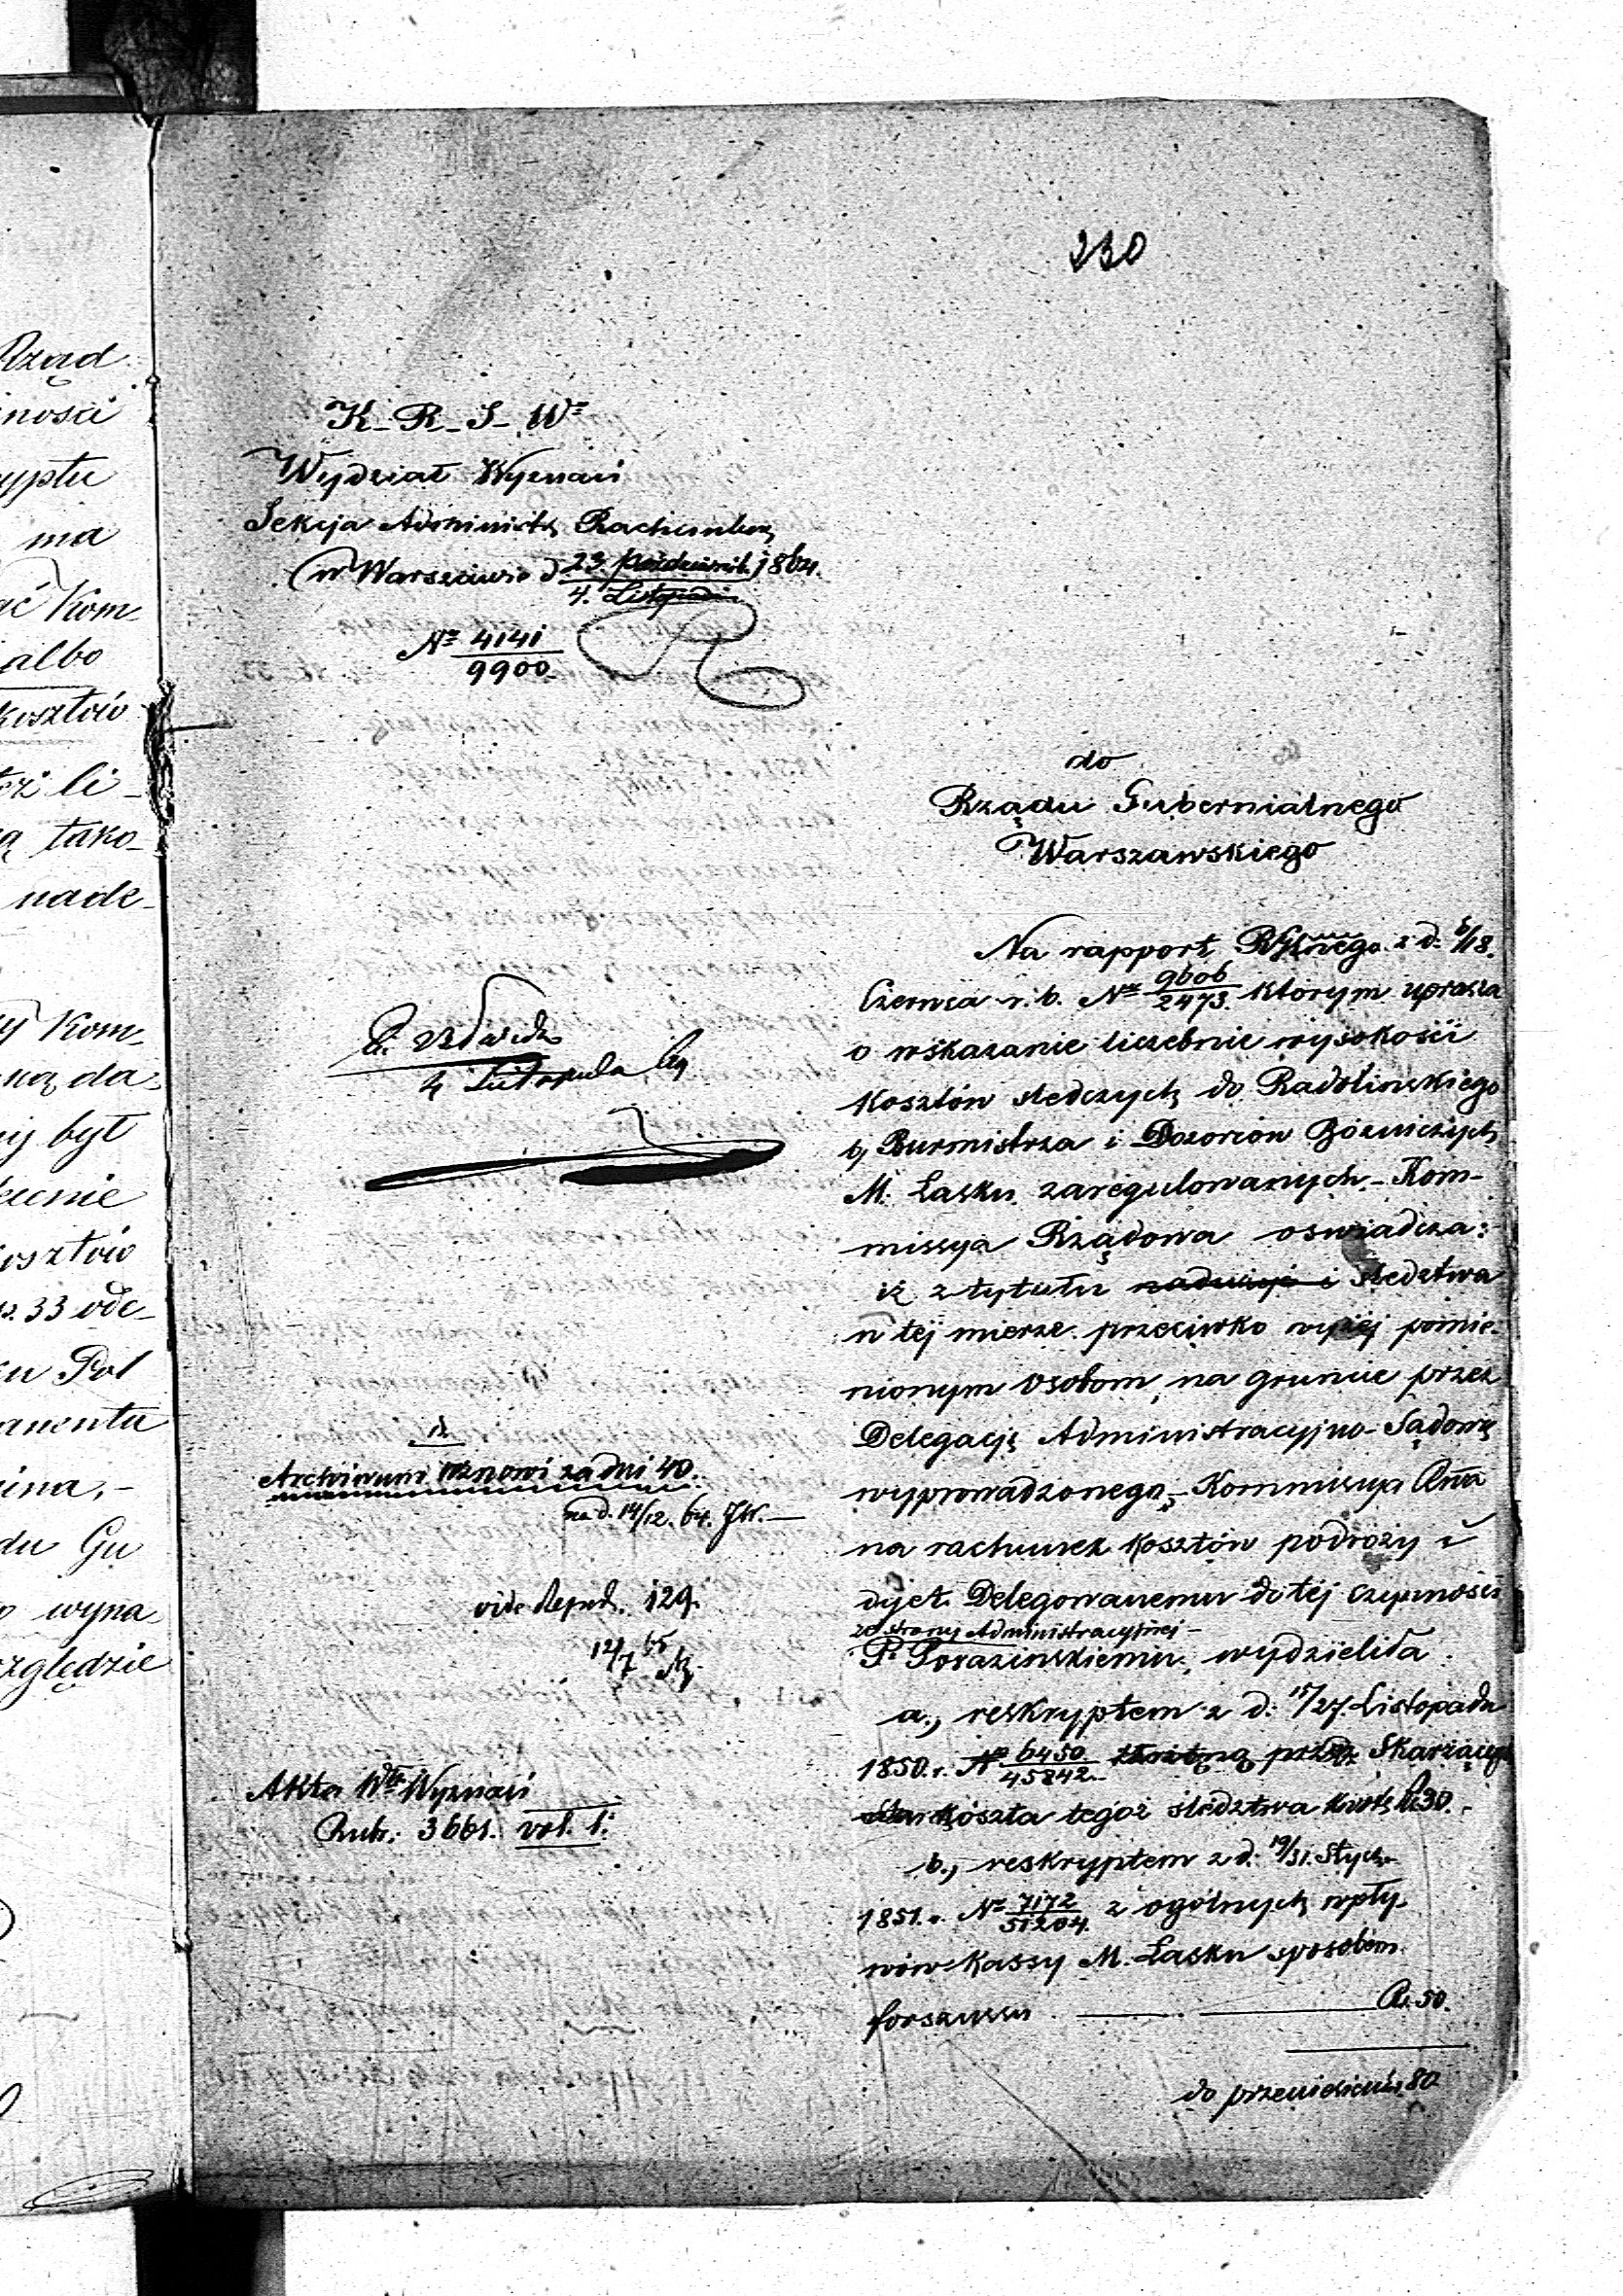 Rząd
ności
yptu
ma
ać Kom-
albo
kosztów
li-
tako-
nade-
Kom-
da-
był
cenie
osztów
33 ode-
Pol
amentu
du Gu
wyna
względzie
230
K. R. S. W.
Wydział Wyznań
Sekcja Administr. Rachunkow.
w Warszawie d. 23 Październik. 1864.
4. Listopada
No 4141
9900.
do
Rządu Gubernialnego
Warszawskiego
Na rapport z d. 6/18.
Czerwca r. b. No 9606/2473. którym uprasza
o wskazanie liczebnie wysokości
kosztów śledczych do Radolinskiego
b. Burmistrza i Dozorców Bóżniczych
M. Łasku zaregulowanych - Kom-
missya Rządowa oswiadcza:
iż z tytułu śledztwa
w tej mierze przeciwko wyżej pomie-
nionym osobom na gruncie przez
Delegację Administracyjno-Sądową
wyprowadzonego, - Kommissya Rwa
na rachunek kosztów podróży i
dyet Delegowanemu do tej czynności
ze strony Administracyjnej -
P. wydzieliła
a., reskryptem z d. 15/27. Listopada
1850. r. No 6450/45842. Skarżącego
koszta tegoż śledztwa Rs. 30. -
b., reskryptem z d. 19/31. Stycz.
1851. r. No 7172/51204. z ogólnych wpły-
wów Kassy M. Łasku sposobem
forszussu Rs. 50.
do przeniesienia 80
4 Listopada
Archiwum wznowi za dni 40.
na d. 14/12. 64.
vide Repert. 129.
12/7 65
Akta Włu Wyznań
Rub. 3661. vol. 1.